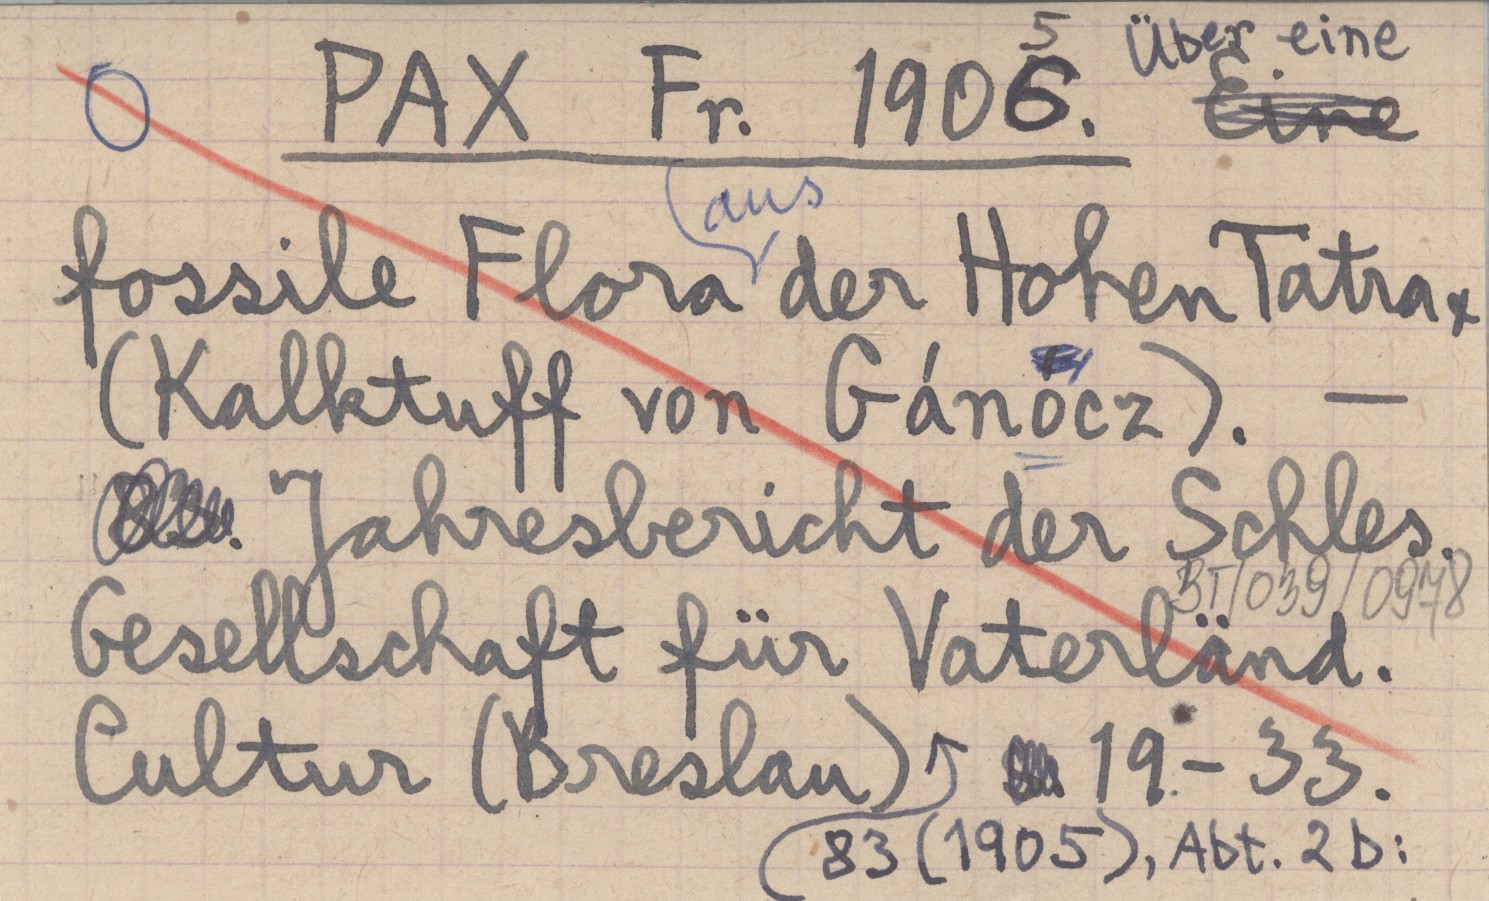 PAX Fr. 1906. 5 Über eine
Eine
aus
fossile Flora der Hohen Tatra
(Kalktuff von Gánócz). —
Jahresbericht der Schles.
BT/039/0978
Gesellschaft für Vaterländ.
Cultur (Breslau) 19-33.
83 (1905), Abt. 2b: